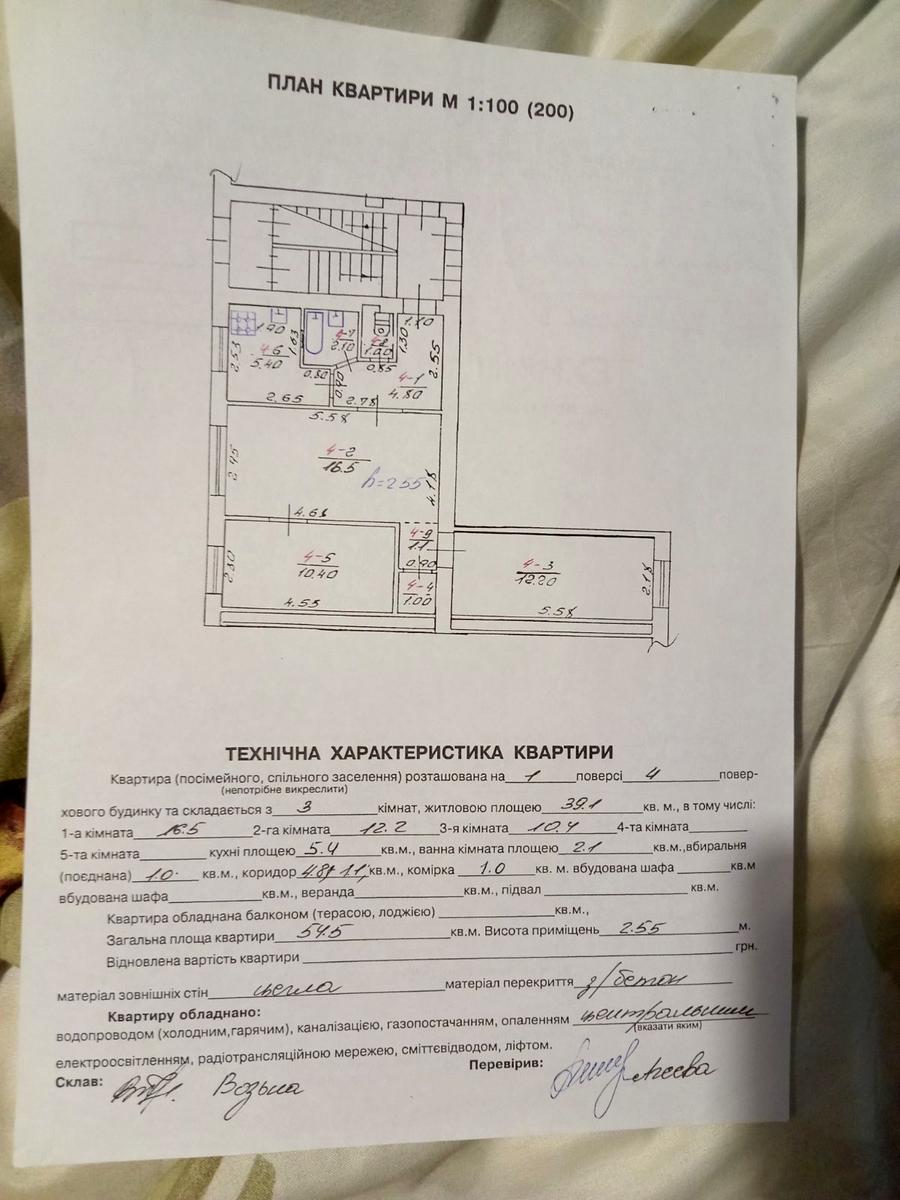 ПЛАН КВАРТИРИ М 1:100 (200)
1.10
1.90
1.63
4-7
2.10
4-8
1.00
1.30
2.53
4-6
5.40
0.80
0.90
0.85
2.55
4-1
4.80
2.65
2.78
5.58
4-2
16.5
h=2.55
2.45
4.18
4.68
4-9
1.1
0.90
4-5
10.40
2.30
4-4
1.00
4.55
4-3
12.20
2.18
5.58
ТЕХНІЧНА ХАРАКТЕРИСТИКА КВАРТИРИ
Квартира (посімейного, спільного заселення) розташована на 1 поверсі 4 повер-
(непотрібне викреслити)
хового будинку та складається з 3 кімнат, житловою площею 39.1 кв. м., в тому числі:
1-а кімната 16.5 2-га кімната 12.2 3-я кімната 10.4 4-та кімната
5-та кімната кухні площею 5.4 кв.м., ванна кімната площею 2.1 кв.м.,вбиральня
(поєднана) 1.0 кв.м., коридор 4.8; 1.1; кв.м., комірка 1.0 кв. м. вбудована шафа кв.м
вбудована шафа кв.м., веранда кв.м., підвал кв.м.
Квартира обладнана балконом (терасою, лоджією) кв.м.,
Загальна площа квартири 54.5 кв.м. Висота приміщень 2.55 м.
Відновлена вартість квартири грн.
матеріал зовнішніх стін цегла матеріал перекриття з/бетон
Квартиру обладнано:
водопроводом (холодним,гарячим), каналізацією, газопостачанням, опаленням центральним
(вказати яким)
електроосвітленням, радіотрансляційною мережею, сміттєвідводом, ліфтом.
Склав: Возьна
Перевірив: Агеєва